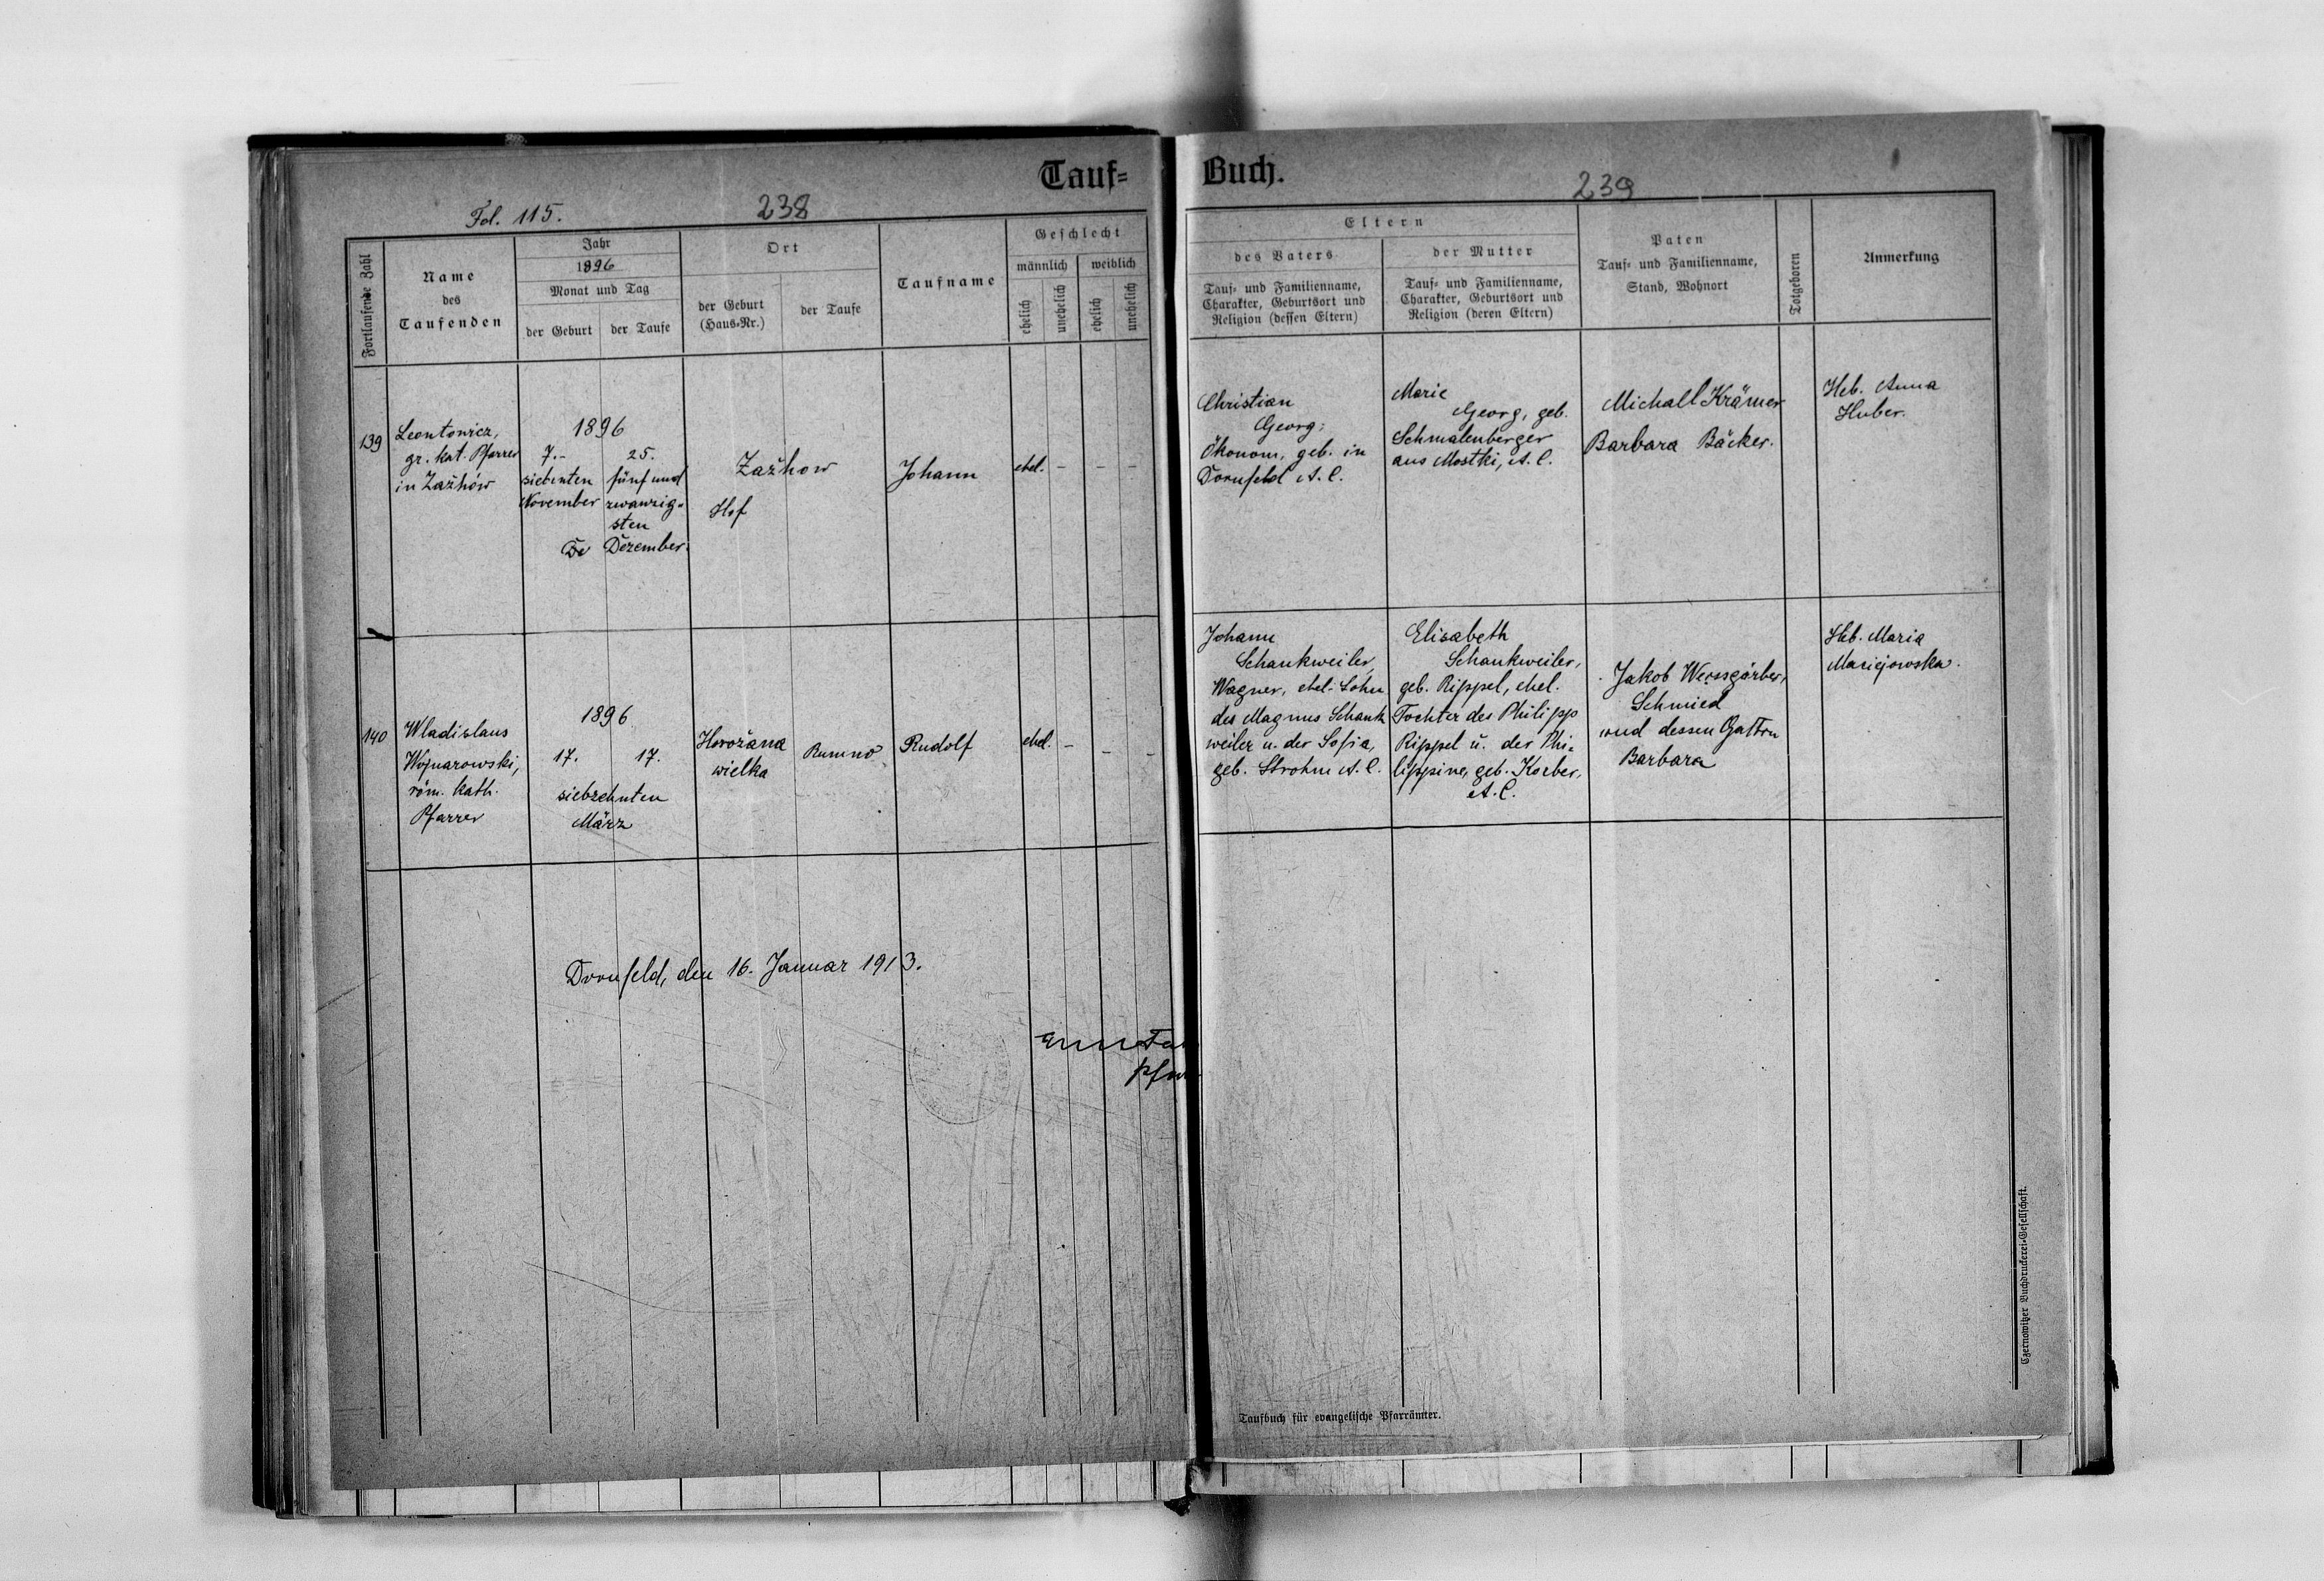 Tauf-
Fol. 115.
238
Fortlaufende Zahl
Name
des
Taufenden
Jahr
1896
Monat und Tag
der Geburt
der Taufe
Ort
der Geburt
(Haus-Nr.)
der Taufe
Taufname
Geschlecht
männlich
weiblich
ehelich
unehelich
ehelich
unehelich
139
Leontowicz,
gr. kat. Pfarrer
in Zažków
1896
7.-
siebenten
November
25.
fünf und
zwanzig-
sten
De Dezember.
Zažkow
Hof
Johann
ehel. - - -
140
Wladislaus
Wojnarowski,
röm. kath.
Pfarrer
1896
17. 17.
siebzehnten
März
Horožana
wielka
Rumno
Rudolf
ehel. - - -
Dornfeld, den 16. Januar 1913.
Buch.
239
Eltern
des Vaters
Tauf- und Familienname,
Charakter, Geburtsort und
Religion (dessen Eltern)
der Mutter
Tauf- und Familienname,
Charakter, Geburtsort und
Religion (deren Eltern)
Paten
Tauf- und Familienname,
Stand, Wohnort
Totgeboren
Anmerkung
Christian
Georg,
Ökonom, geb. in
Dornfeld A. C.
Marie
Georg, geb.
Schmalenberger
aus Mostki, A. C.
Michall Krämer
Barbara Bäcker.
Heb. Anna
Huber.
Johann
Schankweiler,
Wagner, ehel. Sohn
des Magnus Schank
weiler u. der Sofia,
geb. Strohm A. C.
Elisabeth
Schankweiler,
geb. Rippel, ehel.
Tochter des Philipp
Rippel u. der Phi-
lippine, geb. Korber,
A. C.
Jakob Weissgärber,
Schmied
und dessen Gattin
Barbara
Heb. Maria
Maciejowska.
Taufbuch für evangelische Pfarrämter.
Czernowitzer Buchdruckerei-Gesellschaft.